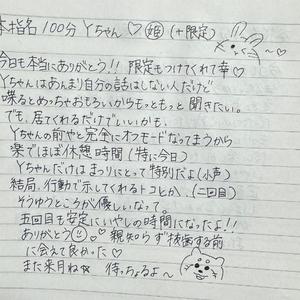 本指名 100分 Yちゃん♡ 姫 (+限定)
今日も本当にありがとう!! 限定もつけてくれて幸♡
Yちゃんはあんまり自分の話はしない人だけど
喋るとめっちゃおもろいからもっともっと聞きたい。
でも、居てくれるだけでいいかも。
Yちゃんの前やと完全にオフモードなってまうから
楽でほぼ休憩時間(特に今日)
Yちゃんだけはまりにとって特別だよ(小声)
結局、行動で示してくれるトコとか、(二回目)
そうゆうところが優しいなって。
五回目も安定にいやしの時間になったよ!!
ありがとう 親知らず抜歯する前
に会えて良かった♡
また来月ね☆ 待っちょるよ〜